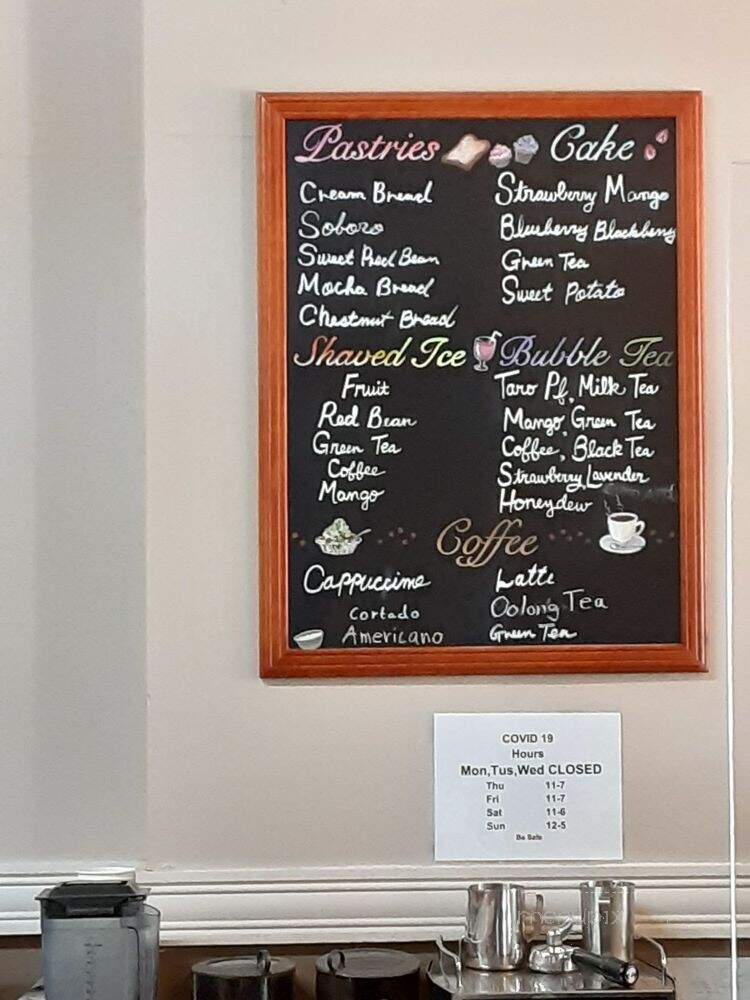 Pastries
Cream Bread
Soboro
Sweet Red Bean
Mocha Bread
Chestnut Bread
Cake
Strawberry Mango
Blueberry Blackberry
Green Tea
Sweet Potato
Shaved Ice
Fruit
Red Bean
Green Tea
Coffee
Mango
Bubble Tea
Taro Pf, Milk Tea
Mango, Green Tea
Coffee, Black Tea
Strawberry, Lavender
Honeydew
Coffee
Cappuccimo
Cortado
Americano
Latte
Oolong Tea
Green Tea
COVID 19
Hours
Mon,Tus,Wed CLOSED
Thu 11-7
Fri 11-7
Sat 11-6
Sun 12-5
Be Safe
menupix